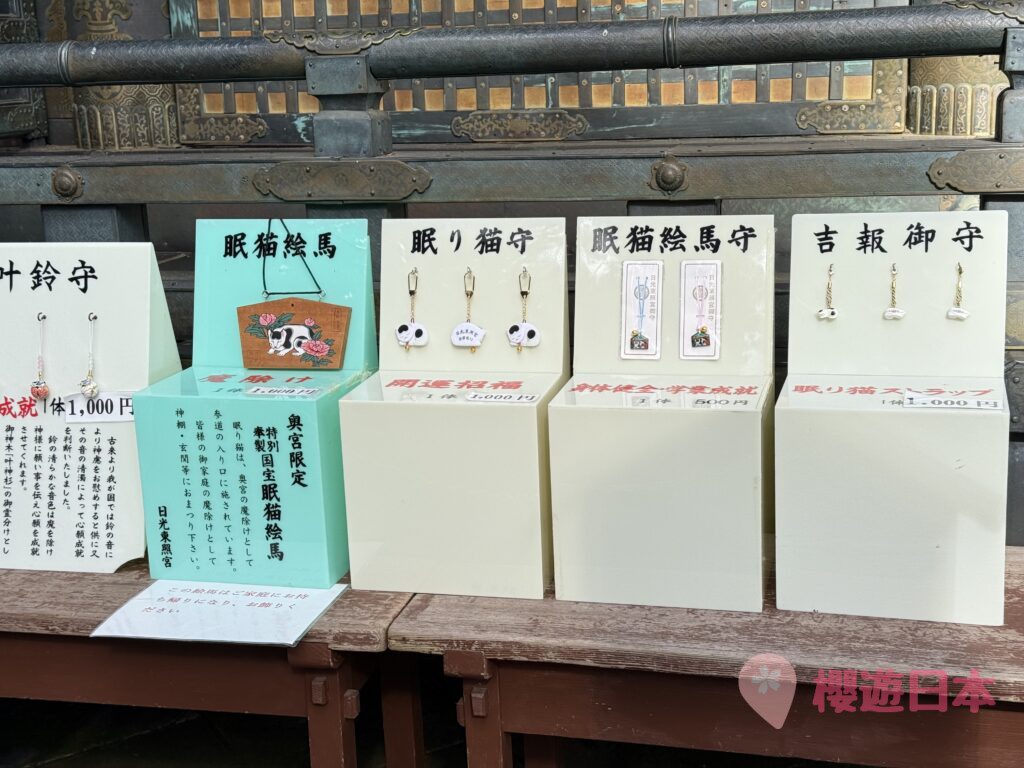 叶鈴守
成就 1体1,000円
古来より我が国では鈴の音に
より神慮をお慰めすると供に又
その音の清濁によって心願成就
を判断いたしました。
鈴の清らかな音色は魔を除け
神様に願い事を伝え心願を成就
させてくれます。
御神木「叶神杉」の御霊分けとし
眠猫絵馬
魔除け
1体 1,000円
奥宮限定
特別奉製 国宝眠猫絵馬
眠り猫は、奥宮の魔除けとして
参道の入り口に施されています。
皆様の御家庭の魔除けとして
神棚・玄関等におまつり下さい。
日光東照宮
この絵馬はご家庭にお持
ち帰りになり、お飾りく
ださい
眠り猫守
開運招福
1体 1,000円
眠猫絵馬守
日光東照宮御守
日光東照宮御守
身体健全・学業成就
1体 500円
吉報御守
眠り猫ストラップ
1,000円
櫻遊日本